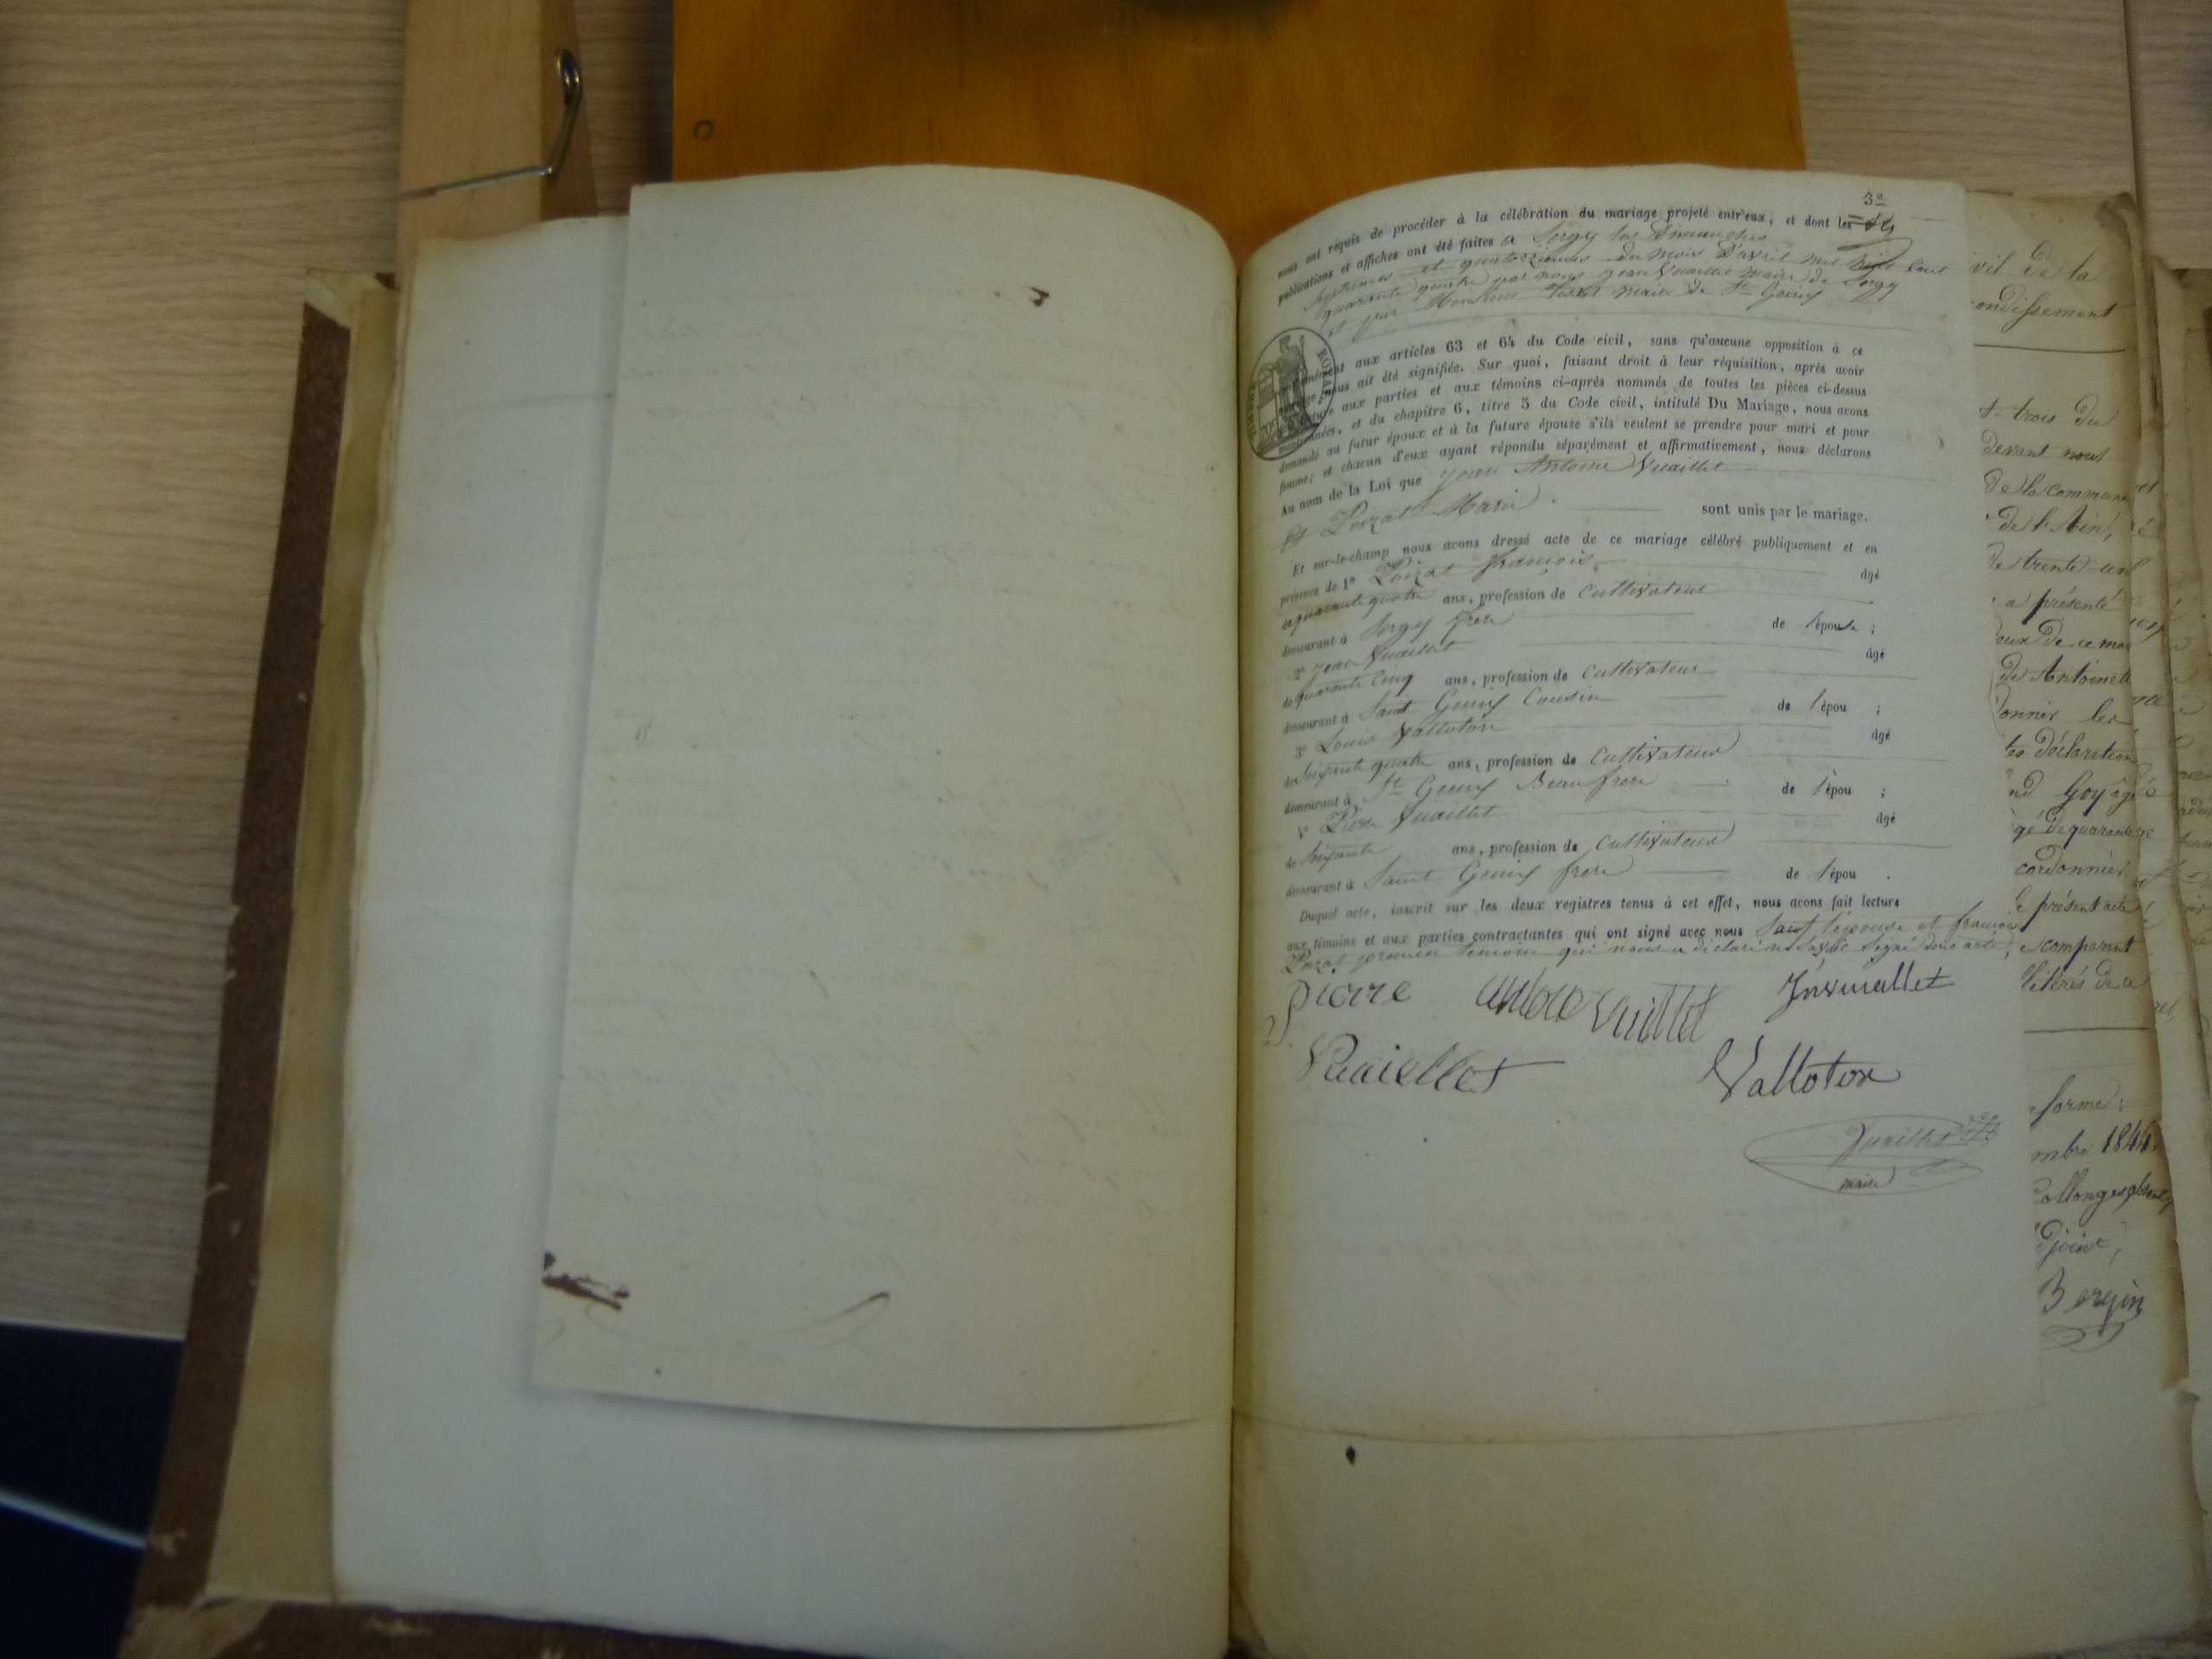 3e
nous ont requis de procéder à la célébration du mariage projeté entr'eux, et dont les
publications et affiches ont été faites a Sergy les Dimanches
septiemes et quatorziemes du mois D'avril mil huit Cent
quarante quatre par nous Jean Vuaillet maire de Sergy
et par Monsieur maire de St Genix
aux articles 63 et 64 du Code civil, sans qu'aucune opposition à ce
mariage nous ait été signifiée. Sur quoi, faisant droit à leur réquisition, après avoir
aux parties et aux témoins ci-après nommés de toutes les pièces ci-dessus
mentionnées, et du chapitre 6, titre 5 du Code civil, intitulé Du Mariage, nous avons
demandé au futur époux et à la future épouse s'ils veulent se prendre pour mari et pour
femme; et chacun d'eux ayant répondu séparément et affirmativement, nous déclarons
Au nom de la Loi que Jean Antoine Vuaillet
et Poizat Marie sont unis par le mariage.
Et sur-le-champ nous avons dressé acte de ce mariage célébré publiquement et en
présence de 1° Poizat françois âgé
de quarante quatre ans, profession de Cultivateur
demeurant à Sergy frere de l'épouse ;
2° Jean Vuaillet âgé
de quarante Cinq ans, profession de Cultivateur
demeurant à Saint Genix Cousin de l'épou ;
3° Louis Valloton âgé
de Soixante quatre ans, profession de Cultivateur
demeurant à St Genix Beaufrere de l'épou ;
4° Pierre Vuaillet âgé
de Soixante ans, profession de Cultivateur
demeurant à Saint Genix frere de l'épou .
Duquel acte, inscrit sur les deux registres tenus à cet effet, nous avons fait lecture
aux témoins et aux parties contractantes qui ont signé avec nous Sauf l'epouse et françois
Poizat premier temoin qui nous a déclaré ne Savoir Signé dont acte
pierre Vuillet Jnvuallet
Vuaiellet Valloton
Vuaillet
maire
TIMBRE ROYAL
vil De la
ondissement
t-trois Du
Devant nous
De la commune
De l'Ain,
De trente-un
a présenté
De ce mo
De Antoinett
onner les
tes déclaration
nd Goy âgé
gé De quarante
cordonnier
le présent acte
comparant
forme:
mbre 1844.
ollonges
Djoint,
Bergin